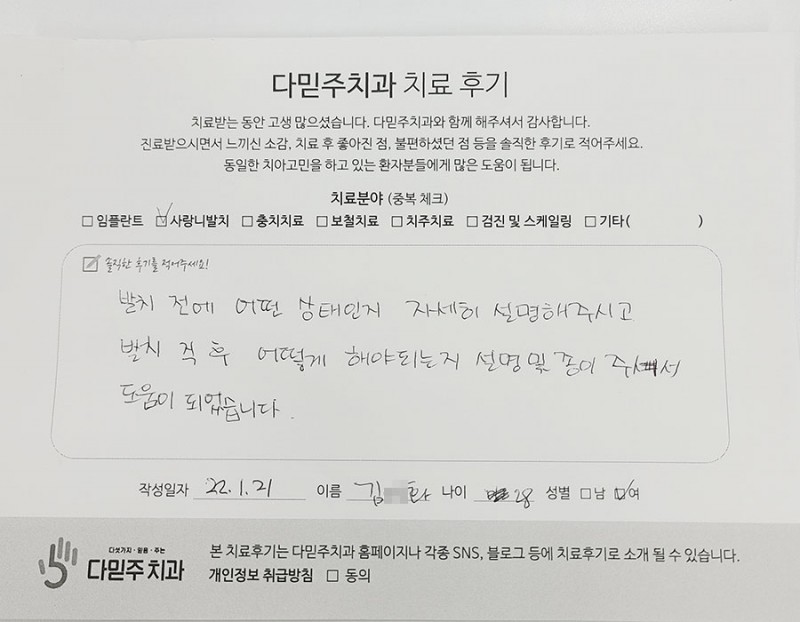 다믿주치과 치료 후기
치료받는 동안 고생 많으셨습니다. 다믿주치과와 함께 해주셔서 감사합니다.
진료받으시면서 느끼신 소감, 치료 후 좋아진 점, 불편하셨던 점 등을 솔직한 후기로 적어주세요.
동일한 치아고민을 하고 있는 환자분들에게 많은 도움이 됩니다.
치료분야 (중복 체크)
□ 임플란트 ☑ 사랑니발치 □ 충치치료 □ 보철치료 □ 치주치료 □ 검진 및 스케일링 □ 기타( )
솔직한 후기를 적어주세요!
발치 전에 어떤 상태인지 자세히 설명해주시고
발치 직후 어떻게 해야되는지 설명 및 종이 주셔서
도움이 되었습니다.
작성일자 22.1.21 이름 김 나이 28 성별 □남 ☑여
다섯가지·믿음·주는
다믿주치과
본 치료후기는 다믿주치과 홈페이지나 각종 SNS, 블로그 등에 치료후기로 소개 될 수 있습니다.
개인정보 취급방침 □ 동의